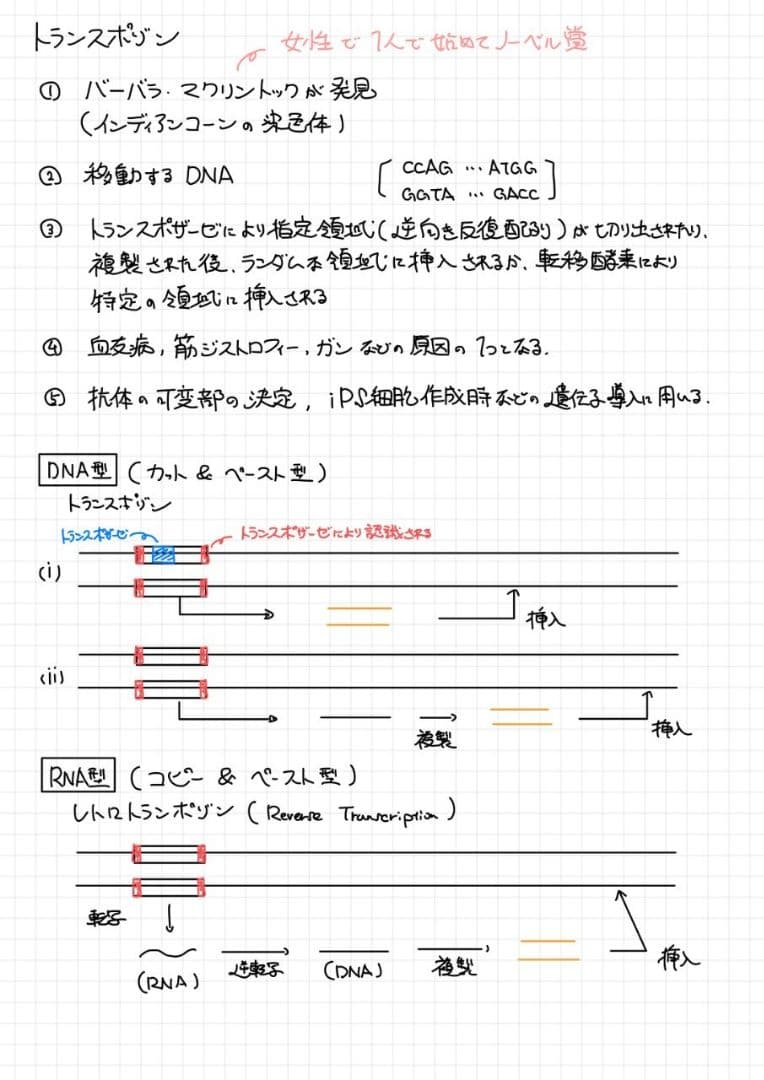 トランスポゾン
女性で1人で始めてノーベル賞
① バーバラ・マクリントックが発見
(インディアンコーンの染色体)
② 移動するDNA
CCAG … ATGG
GGTA … GACC
③ トランスポザーゼにより指定領域(逆向き反復配列)が切り出されたり、
複製された後、ランダムな領域に挿入されるか、転移酵素により
特定の領域に挿入される
④ 血友病, 筋ジストロフィー, ガンなどの原因の1つとなる.
⑤ 抗体の可変部の決定, iPS細胞作成時などの遺伝子導入に用いる.
DNA型 (カット & ペースト型)
トランスポゾン
トランスポザーゼ トランスポザーゼにより認識される
(i)
挿入
(ii)
複製 挿入
RNA型 (コピー & ペースト型)
レトロトランポゾン (Reverse Transcription)
転写
(RNA) 逆転写 (DNA) 複製 挿入